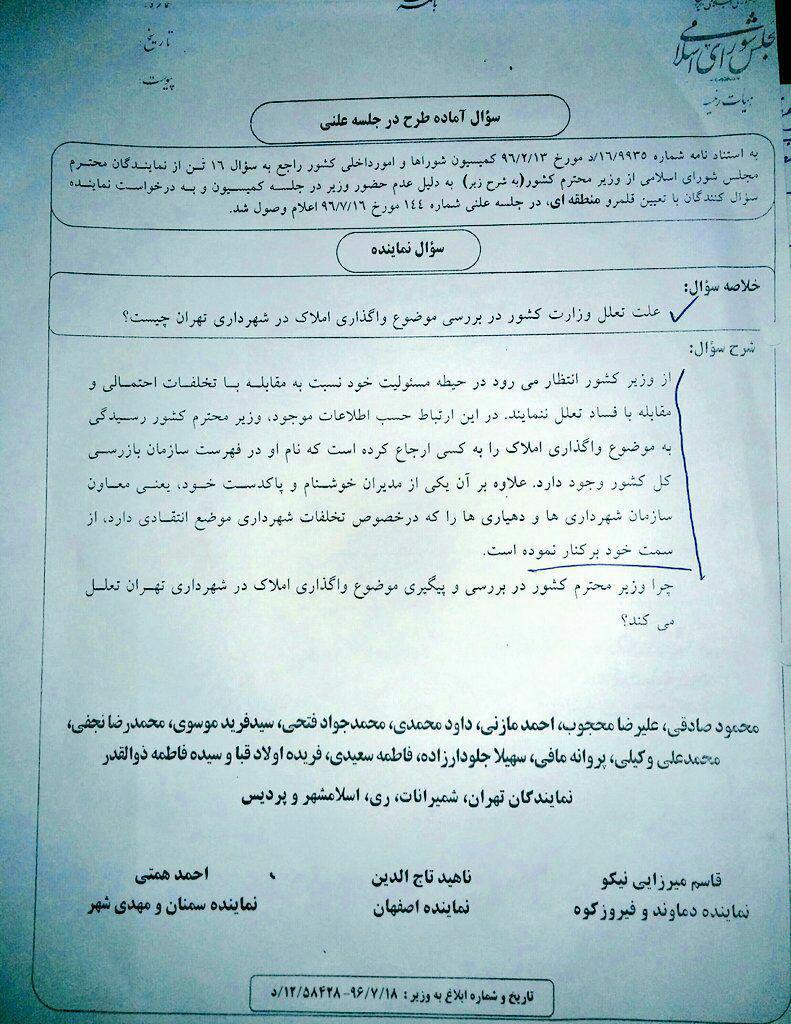 مجلس شورای اسلامی
هیات رئیسه
تاریخ
پیوست
سؤال آماده طرح در جلسه علنی
به استناد نامه شماره ۱۶/۹۹۳۵/د مورخ ۹۶/۲/۱۳ کمیسیون شوراها و امورداخلی کشور راجع به سؤال ۱۶ تن از نمایندگان محترم
مجلس شورای اسلامی از وزیر محترم کشور(به شرح زیر) به دلیل عدم حضور وزیر در جلسه کمیسیون و به درخواست نماینده
سؤال کنندگان با تعیین قلمرو منطقه ای، در جلسه علنی شماره ۱۴۴ مورخ ۹۶/۷/۱۶ اعلام وصول شد.
سؤال نماینده
خلاصه سؤال:
علت تعلل وزارت کشور در بررسی موضوع واگذاری املاک در شهرداری تهران چیست؟
شرح سؤال:
از وزیر کشور انتظار می رود در حیطه مسئولیت خود نسبت به مقابله با تخلفات احتمالی و
مقابله با فساد تعلل ننمایند. در این ارتباط حسب اطلاعات موجود، وزیر محترم کشور رسیدگی
به موضوع واگذاری املاک را به کسی ارجاع کرده است که نام او در فهرست سازمان بازرسی
کل کشور وجود دارد. علاوه بر آن یکی از مدیران خوشنام و پاکدست خود، یعنی معاون
سازمان شهرداری ها و دهیاری ها را که درخصوص تخلفات شهرداری موضع انتقادی دارد، از
سمت خود برکنار نموده است.
چرا وزیر محترم کشور در بررسی و پیگیری موضوع واگذاری املاک در شهرداری تهران تعلل
می کند؟
محمود صادقی، علیرضا محجوب، احمد مازنی، داود محمدی، محمدجواد فتحی، سیدفرید موسوی، محمدرضا نجفی،
محمدعلی وکیلی، پروانه مافی، سهیلا جلودارزاده، فاطمه سعیدی، فریده اولاد قبا و سیده فاطمه ذوالقدر
نمایندگان تهران، شمیرانات، ری، اسلامشهر و پردیس
قاسم میرزایی نیکو
نماینده دماوند و فیروزکوه
ناهید تاج الدین
نماینده اصفهان
احمد همتی
نماینده سمنان و مهدی شهر
تاریخ و شماره ابلاغ به وزیر: ۹۶/۷/۱۸-۱۲/۵۸۴۲۸/د